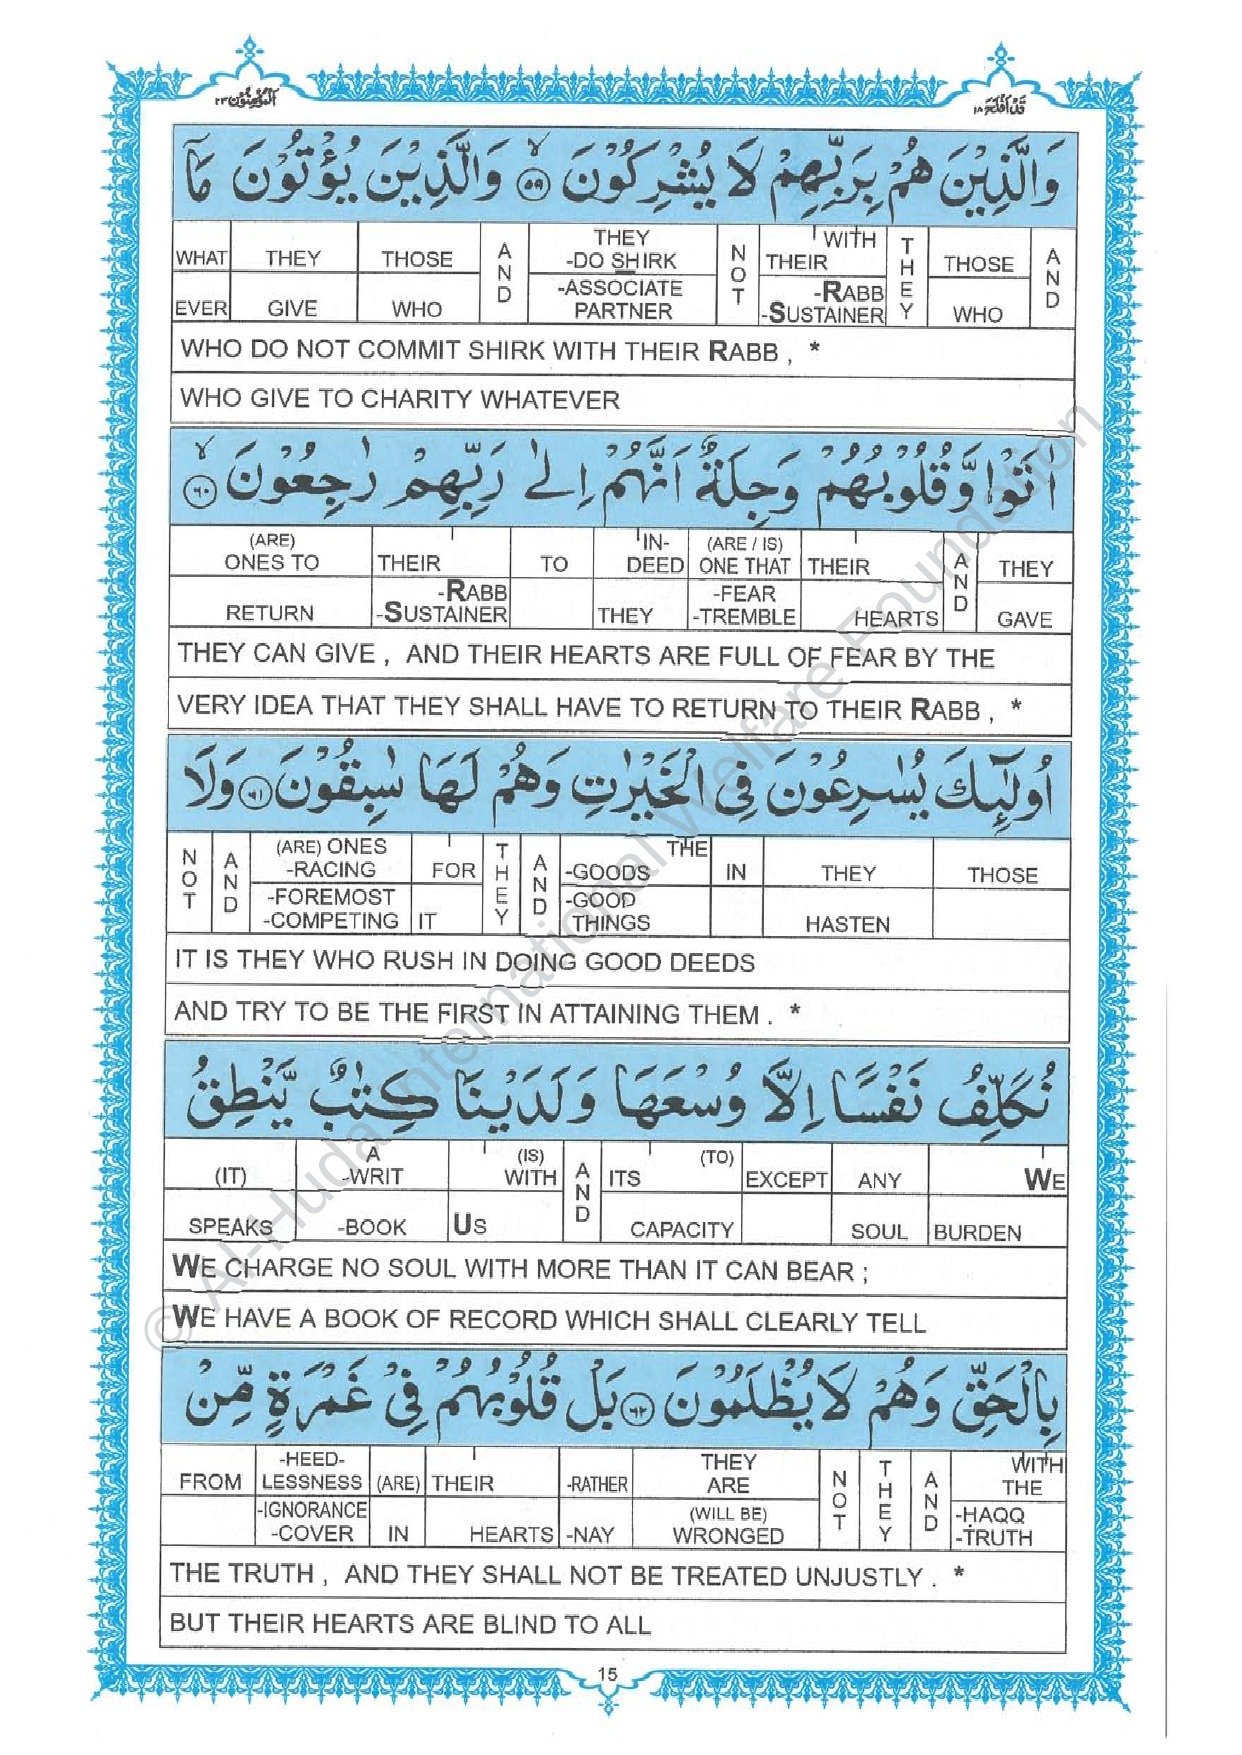 اَلْمُؤْمِنُوْن ٢٣
قَدْ اَفْلَحَ ١٨
وَالَّذِيْنَ هُمْ بِرَبِّهِمْ لَا يُشْرِكُوْنَ ۙ﴿٥٩﴾ وَالَّذِيْنَ يُؤْتُوْنَ مَآ
WHAT THEY THOSE AND THEY -DO SHIRK NOT WITH THEIR THEY THOSE AND
EVER GIVE WHO -ASSOCIATE PARTNER -RABB -SUSTAINER WHO
WHO DO NOT COMMIT SHIRK WITH THEIR RABB , *
WHO GIVE TO CHARITY WHATEVER
اٰتَوْا وَّقُلُوْبُهُمْ وَجِلَةٌ اَنَّهُمْ اِلٰى رَبِّهِمْ رٰجِعُوْنَ ۙ﴿٦٠﴾
(ARE) ONES TO THEIR TO IN- DEED (ARE / IS) ONE THAT THEIR AND THEY
RETURN -RABB -SUSTAINER THEY -FEAR -TREMBLE HEARTS GAVE
THEY CAN GIVE , AND THEIR HEARTS ARE FULL OF FEAR BY THE
VERY IDEA THAT THEY SHALL HAVE TO RETURN TO THEIR RABB , *
اُولٰٓئِكَ يُسٰرِعُوْنَ فِى الْخَيْرٰتِ وَهُمْ لَهَا سٰبِقُوْنَ ﴿٦١﴾ وَلَا
NOT AND (ARE) ONES -RACING FOR THEY AND THE -GOODS IN THEY THOSE
-FOREMOST -COMPETING IT -GOOD THINGS HASTEN
IT IS THEY WHO RUSH IN DOING GOOD DEEDS
AND TRY TO BE THE FIRST IN ATTAINING THEM . *
نُكَلِّفُ نَفْسًا اِلَّا وُسْعَهَا وَلَدَيْنَا كِتٰبٌ يَّنْطِقُ
(IT) A -WRIT (IS) WITH AND ITS (TO) EXCEPT ANY WE
SPEAKS -BOOK US CAPACITY SOUL BURDEN
WE CHARGE NO SOUL WITH MORE THAN IT CAN BEAR ;
WE HAVE A BOOK OF RECORD WHICH SHALL CLEARLY TELL
بِالْحَقِّ وَهُمْ لَا يُظْلَمُوْنَ ﴿٦٢﴾ بَلْ قُلُوْبُهُمْ فِيْ غَمْرَةٍ مِّنْ
FROM -HEED- LESSNESS (ARE) THEIR -RATHER THEY ARE NOT THEY AND WITH THE
-IGNORANCE -COVER IN HEARTS -NAY (WILL BE) WRONGED -HAQQ -TRUTH
THE TRUTH , AND THEY SHALL NOT BE TREATED UNJUSTLY . *
BUT THEIR HEARTS ARE BLIND TO ALL
15
© Al-Huda International Welfare Foundation